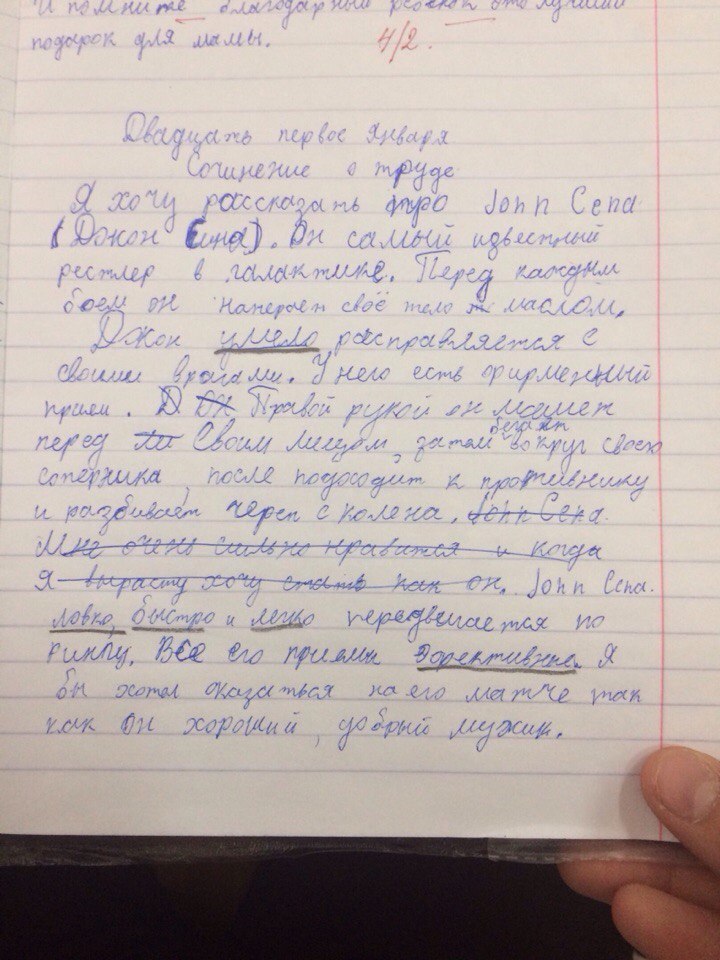 И помните благодарный ребёнок это лучший
подарок для мамы. 4/2.
Двадцать первое января
Сочинение о труде
Я хочу рассказать про John Cena
(Джон Сина). Он самый известный
рестлер в галактике. Перед каждым
боем он натерает своё тело маслом.
Джон умело расправляется с
своими врагами. У него есть фирменный
прием. Д Дж Правой рукой он машет
перед ли Своим лицом, затем бегает вокруг своего
соперника, после подосодит к противнику
и разбивает череп с колена. John Cena.
Мне очень сильно нравится и когда
Я вырасту хочу стать как он. John Cena.
ловко, быстро и легко передвигается по
рингу. Все его приемы эфективные. Я
бы хотел оказаться на его матче так
как он хороший, добрый мужик.